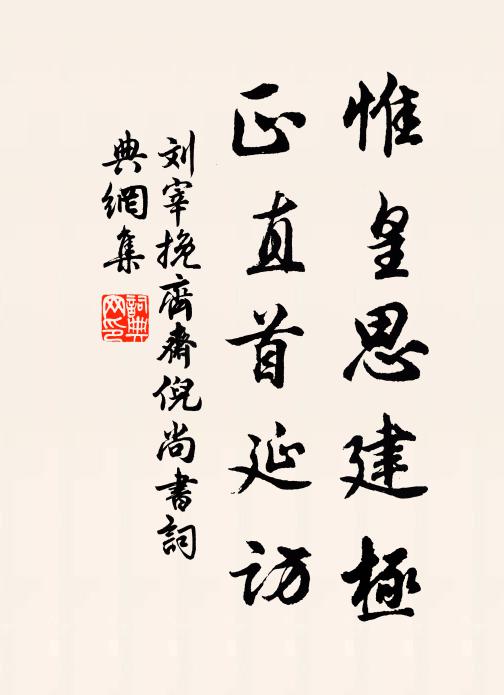 惟皇思建極
正直首延訪
刘宰挽齊齋倪尚書詞
典網集
詞典網印